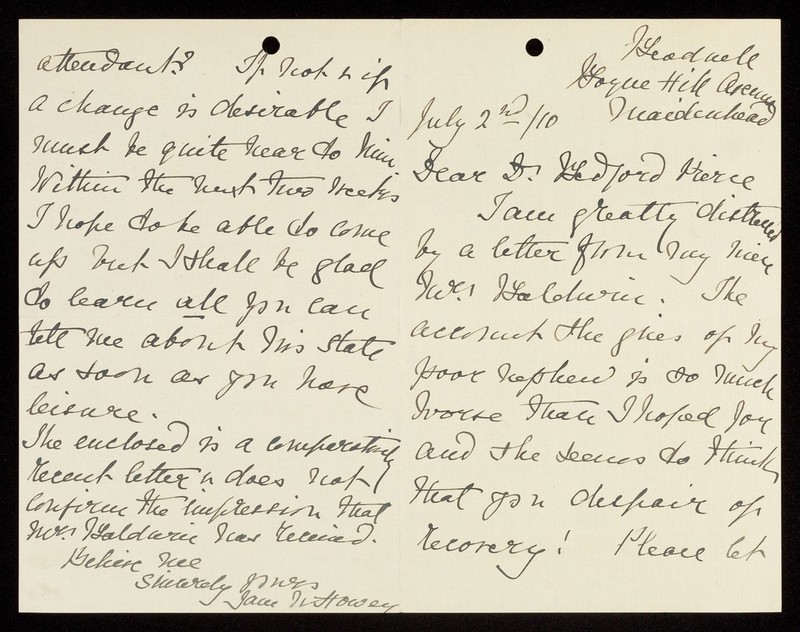 Bradwell
Boyne Hill Avenue
Maidenhead
July 2nd/10
Dear Dr. Bedford Pierce
I am greatly distressed
by a letter from my niece
Mrs. Baldwin. The
account she gives of my
poor nephew is so much
worse than I hoped for
and she seems to think
that you despair of
recovery! Please let
attendant? If not & if
a change is desirable I
must be quite near to him
Within the next two weeks
I hope to be able to come
up but I shall be glad
to learn all you can
tell me about his state
as soon as you have
leisure.
The enclosed is a comparatively
recent letter & does not
confirm the impression that
Mrs. Baldwin has received.
Believe me
Sincerely yours
Jane Howey